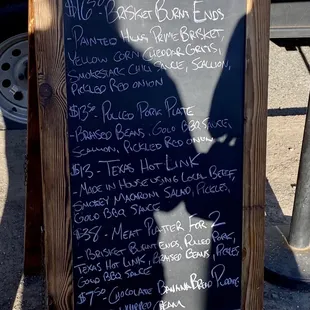 $16.50 - Brisket Burnt Ends
- Painted Hills Prime Brisket,
Yellow Corn Cheddar Grits,
Smokestack Chili Sauce, Scallion,
Pickled Red Onion
$13.50 - Pulled Pork Plate
- Braised Beans, Gold BBQ Sauce,
Scallion, Pickled Red Onion
$13 - Texas Hot Link
- Made in House using Local Beef,
Smokey Macaroni Salad, Pickles,
Gold BBQ Sauce
$38 - Meat Platter For 2
- Brisket Burnt Ends, Pulled Pork,
Texas Hot Link, Braised Beans, Pickles,
Gold BBQ Sauce
$7.50 Chocolate Banana Bread Plate
Cream